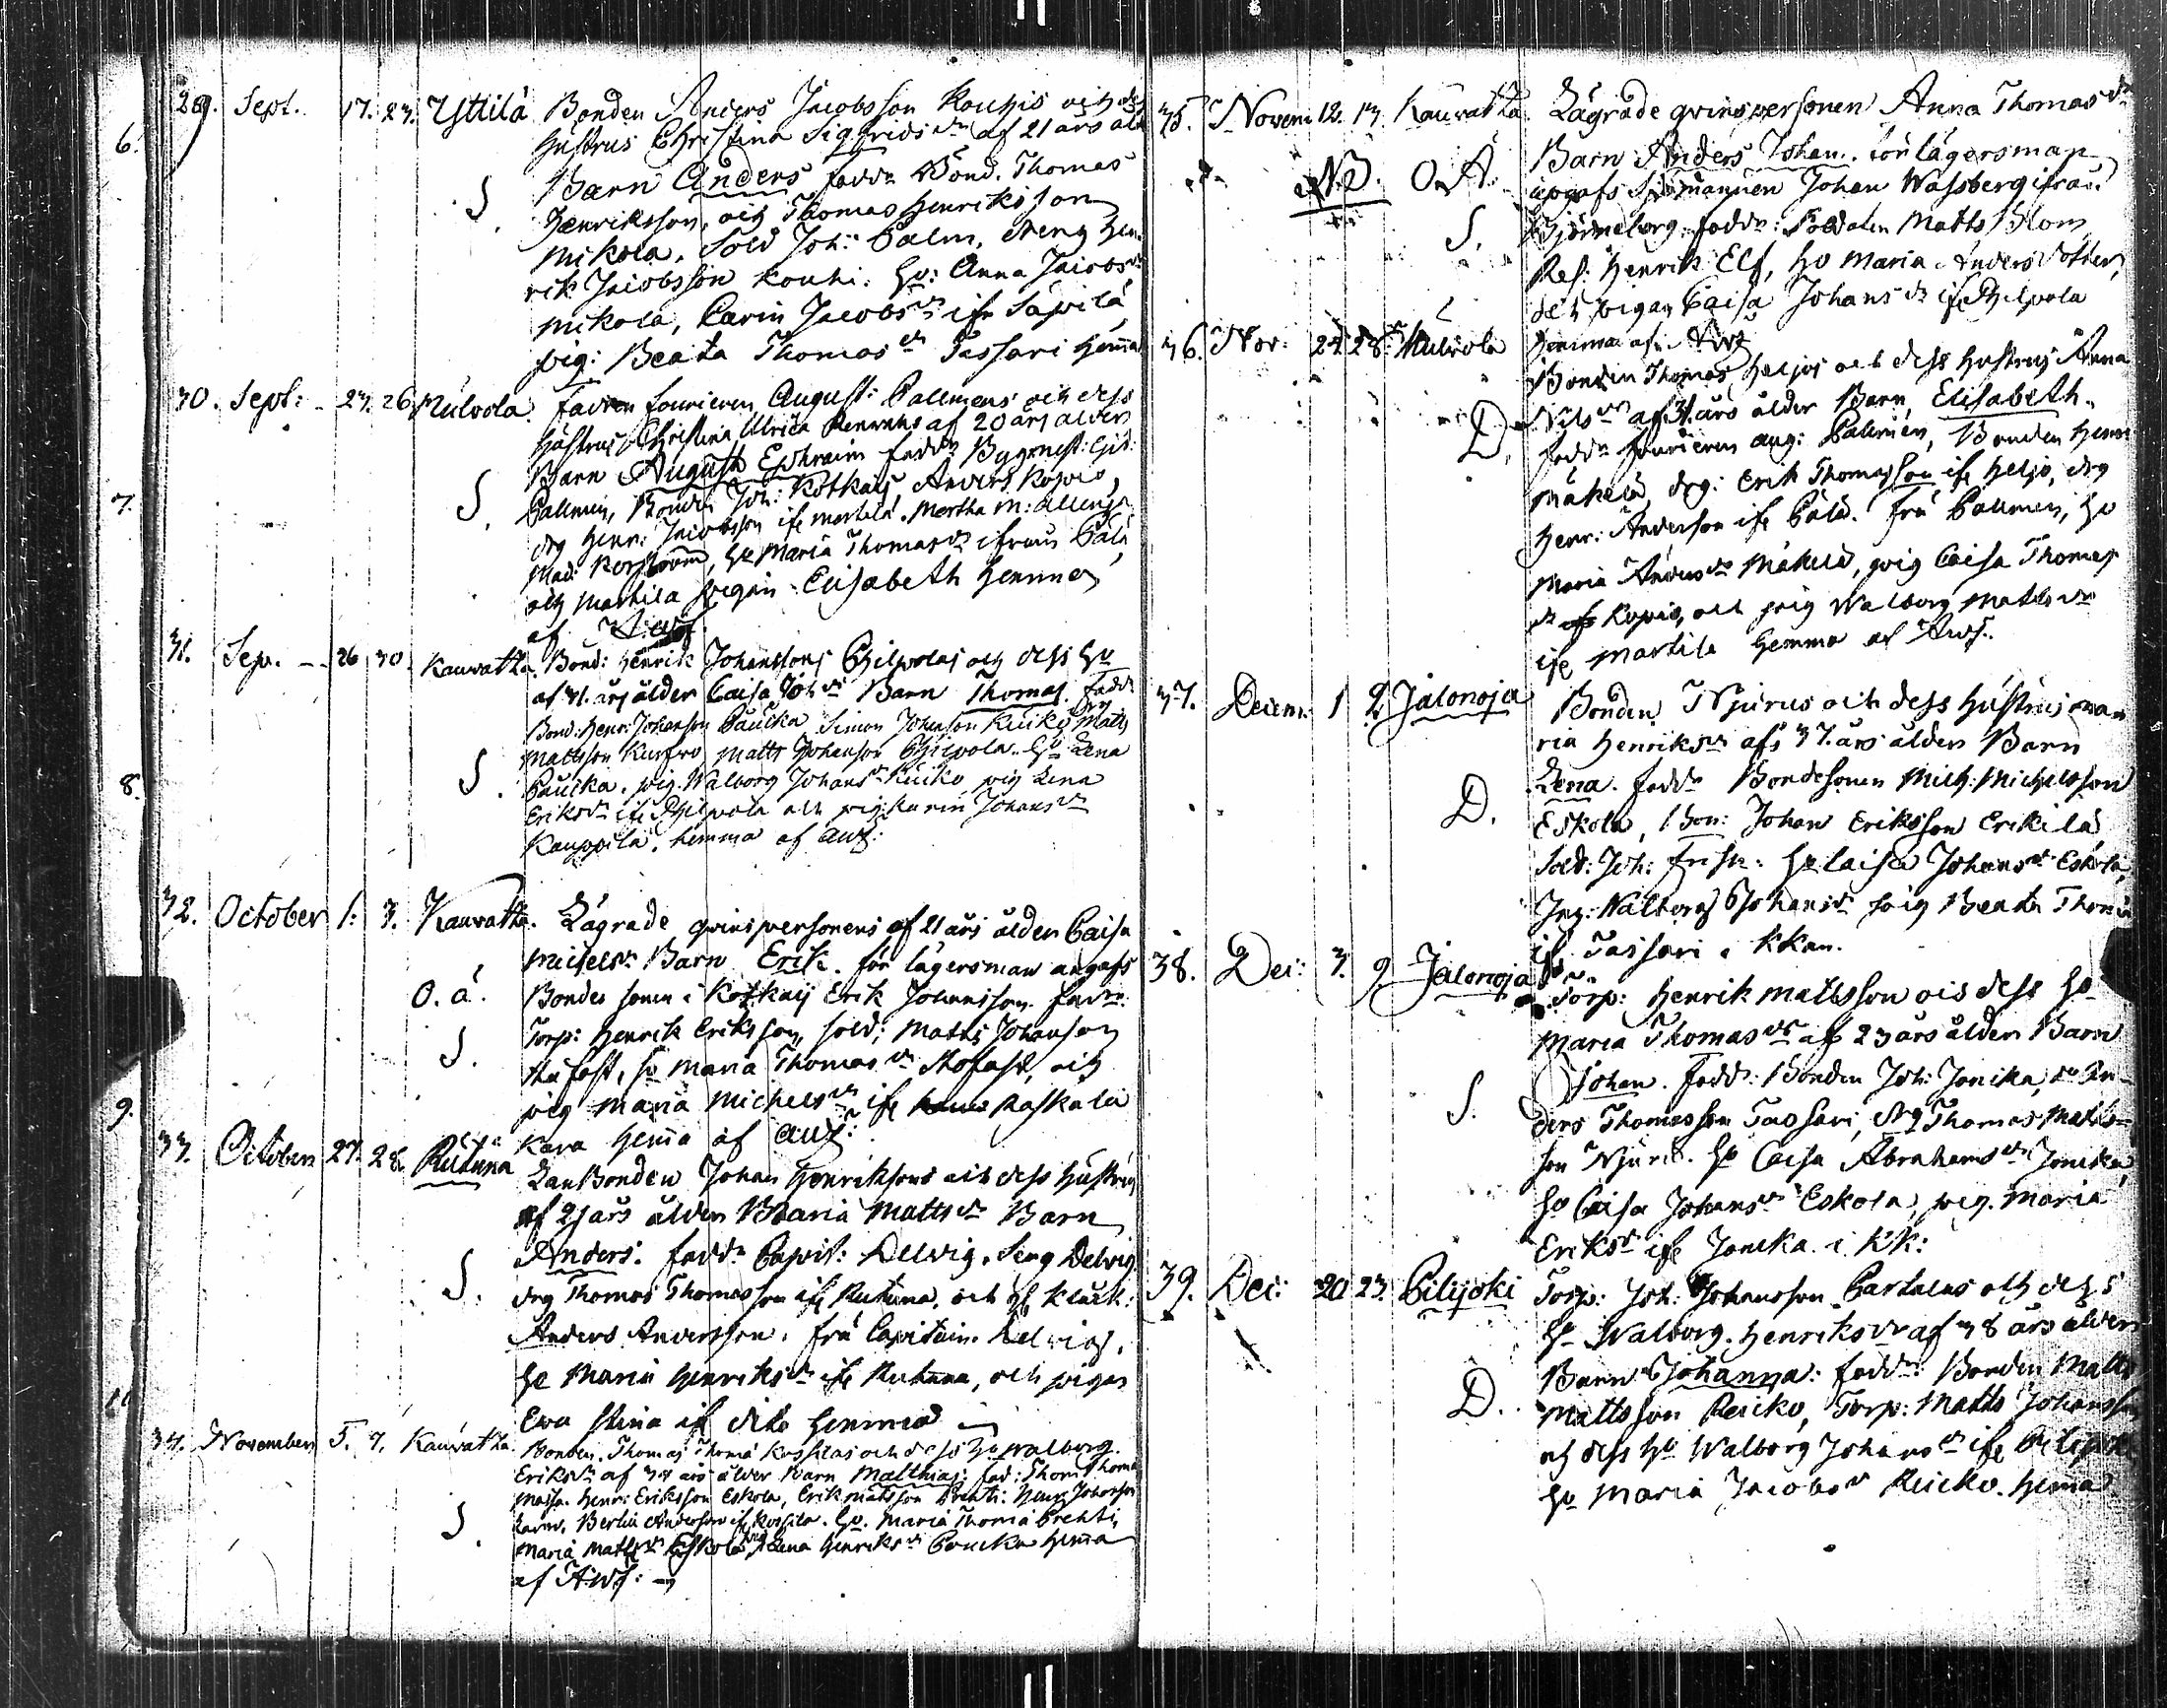 29. Sept. 17. 23. Yttilä Bonden Anders Jacobsson Kouhis och dess
6. hustrus Christina Sigfrids dr af 21 års åld
Barn Anders fadd. Bond. Thomas
S. Henriksson, och Thomas Henriksson
Mikola. Sold Joh: Palm, dreng Hen
rik Jacobsson Kouhi. Hu: Anna Jacobs dr
Mikola, Carin Jacobs dr ifr Säpilä
pig: Beata Thomas dr Tassari hemma
30. Sept: 23. 26 Fourieren August: Pallmens och dess
hustrus Christina Ulrica af 20 års ålder
Barn August Ephraim fadd.
7. S. Pallmen, Bonden Joh: Kotkais, Anders
drg Henr: Jacobsson ifr Martila. Martha
Mad: Hu Maria Thomas dr ifrån
och Martila pigan Elisabeth hemma
af
31. Sep. 26 30 Kauvatsa. Bond: Henrik Johanssons och dess Hu
af 31. års ålder Caisa Joh dr Barn Thomas. fadd
Bond: Henr: Johanson Paucka Simon Johanson Kuiko, Matts
Mattsson Matts Johanson Hu Lena
8. S. Paucka. pig. Walborg Johans dr Kuiko pig Lena
Eriks dr ifr och pig Karin Johans dr
Kauppila. hemma af
32. October 1. 3. Kauvatsa. Lägrade qvinspersonens af 21 års ålder Caisa
Michels dr Barn Erik. för lägersman angafs
O. ä. Bonde sonen i Kotkais Erik Johansson. fadd:
S. Torp: Henrik Eriksson, sold: Matts Johanson
Stufast, Hu Maria Thomas dr Stofast, och
9. pig Maria Michels dr ifr Raskala
Kara hemma af
33. October 27. 28. Rutuna Lanbonden Johan Henrikssons och dess hustrus
af års ålder Maria Matts dr Barn
Anders. fadd. Capit: Delwig. Serg Delwig
S. drg Thomas Thomasson ifr Rutuna, och Klåck:
Anders Andersson. fru Capitain Delwig,
Hu Maria Henriks dr ifr Rutuna, och pigan
Ewa Stina if dito hemma
34. November 5. 7. Kauvatsa. Bonden. Thomas Thoma och dess Hu Walborg
Eriks dr af 34 års ålder Barn Matthias: fad: Thom Thoma
Henr: Eriksson Eskola, Erik Matsson Prehti: Henr Johanson
S. Andersson if. Hu. Maria Thoma Prehti,
Maria Matts dr Eskola, Lena Henriks dr Paucka hemma
af
35. Novem 12. 13. Kauvatsa Lägrade qvinspersonen Anna Thomas dr
Barn Anders Johan. för lägersman
NB. O. Ä. upgafs Sjömannen Johan Wassberg ifrån
S. Björneborg. fadd: Soldaten Matts Blom
Res: Henrik Elf, Hu Maria Anders dotter,
och pigan Caisa Johans dr if
36. Nov: 24. 28. hemma af
Bonden Thomas Heljos och dess hustrus Anna
D. Nils dr af 31. års ålder Barn Elisabeth.
fadd. Fourieren Aug: Pallmen, Bonden Henr
Mäkelä, drg: Erik Thomasson if Heljo, drg
Henr: Anderson if Fru Pallmen, Hu
Maria Anders dr Mäkelä, pig Caisa Thomas
dr och pig Walborg Matts dr
ifr Martila hemma af
37. Decem. 1 2 Jalonoja Bonden Njurus och dess hustrus Ma
ria Henriks dr af 37. års ålder Barn
Lena. fadd. Bondesonen Mich: Michelsson
D. Eskola, Bon: Johan Eriksson Erkilä
Sold: Joh: Frisk. Hu Caisa Johans dr Eskola,
Walborg Johans dr pig Beata Thoma
if Tassari i KKan.
38. Dec: 3. 9. Jalonoja Torp: Henrik Mattsson och dess Hu
Maria Thomas dr af 23 års ålder Barn
Johan. fadd: Bonden Joh: Jonika, An-
S. ders Thomasson Tassari, drg Thomas Matts-
son Njuru. Hu Caisa Abrahams dr Jonika,
Hu Caisa Johans dr Eskola, pig. Maria
Eriks dr if Jonika i KK:
39. Dec: 20 23. Pilijoki Torp: Joh: Johansson och dess
Hu Walborg. Henriks dr af 38 års ålder
Barn Johanna: fadd: Bonden Matts
D. Mattsson Reicko, Torp: Matts Johansson
och dess Hu Walborg Johans dr if Pilijoki
Hu Maria Jacobs dr Reicko. hema